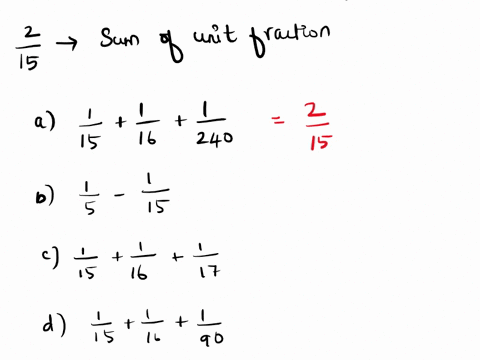 2/15 → Sum of unit fraction
a) 1/15 + 1/16 + 1/240 = 2/15
b) 1/5 - 1/15
c) 1/15 + 1/16 + 1/17
d) 1/15 + 1/16 + 1/90